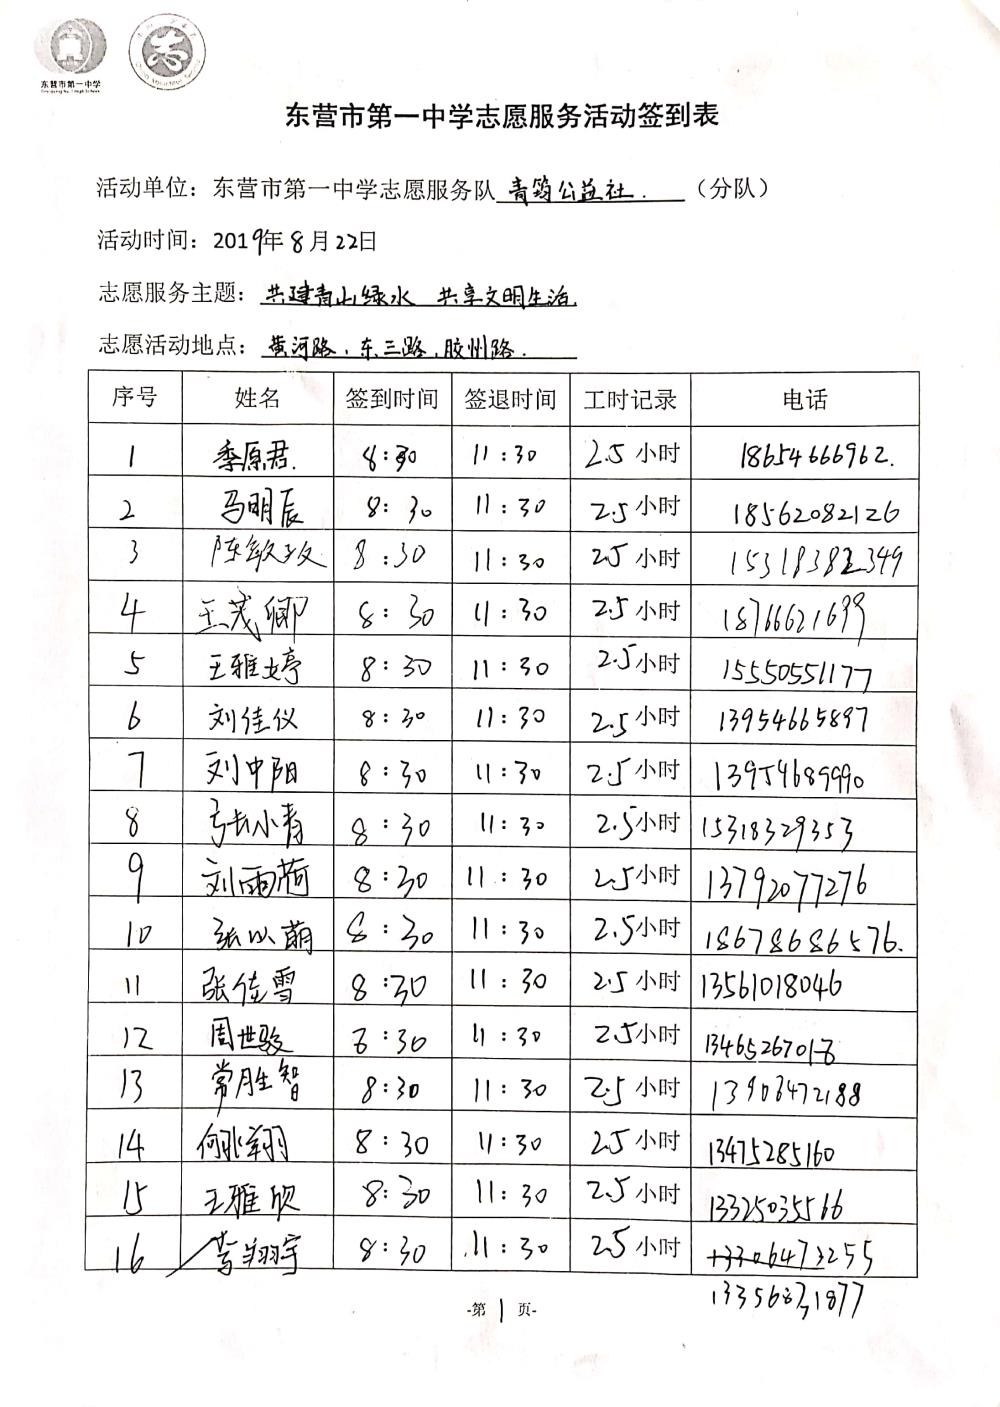 东营市第一中学
志
东营市第一中学志愿服务活动签到表
活动单位：东营市第一中学志愿服务队 青筠公益社. （分队）
活动时间：2019年8月22日
志愿服务主题：共建青山绿水 共享文明生活
志愿活动地点：黄河路、东三路、胶州路.
序号 姓名 签到时间 签退时间 工时记录 电话
1 季原君. 8:30 11:30 2.5小时 18654666962.
2 马明辰 8:30 11:30 2.5小时 18562082126
3 陈敏孜 8:30 11:30 2.5小时 15318382349
4 王茂卿 8:30 11:30 2.5小时 18766621699
5 王雅婷 8:30 11:30 2.5小时 15550551177
6 刘佳仪 8:30 11:30 2.5小时 13954665897
7 刘中阳 8:30 11:30 2.5小时 13954689990
8 张小青 8:30 11:30 2.5小时 15318329353
9 刘雨荷 8:30 11:30 2.5小时 13792077276
10 张以萌 8:30 11:30 2.5小时 18678686576.
11 张佳雪 8:30 11:30 2.5小时 13561018046
12 周世骏 8:30 11:30 2.5小时 13465267018
13 常胜智 8:30 11:30 2.5小时 13906472188
14 何兆翔 8:30 11:30 2.5小时 13475285160
15 王雅欣 8:30 11:30 2.5小时 13325035566
16 李翔宇 8:30 11:30 2.5小时 13306473255
13356871877
-第 1 页-